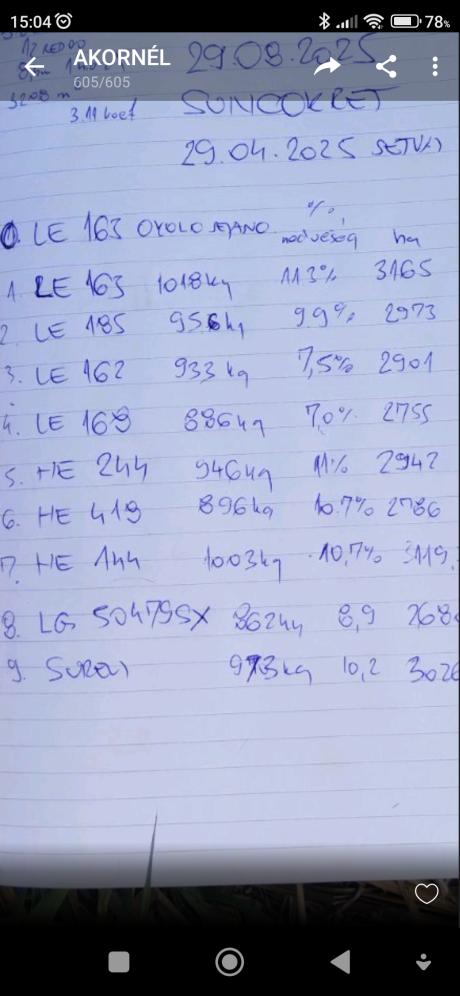 15:04 78%
AKORNÉL
605/605
29.08.2025
3.11 koef
SUNCOKRET
29.04.2025 SETVA
%
0. LE 163 nedvéség ha
1. LE 163 1018kg 11.3% 3165
2. LE 185 956kg 9.9% 2973
3. LE 162 933 kg 7,5% 2901
4. LE 169 886kg 7,0% 2755
5. HE 244 946kg 11% 2942
6. HE 419 896kg 10.7% 2786
7. HE 144 1003kg 10,7% 3119
8. LG 50479SX 862kg 8,9 268
9. 973kg 10,2 3026